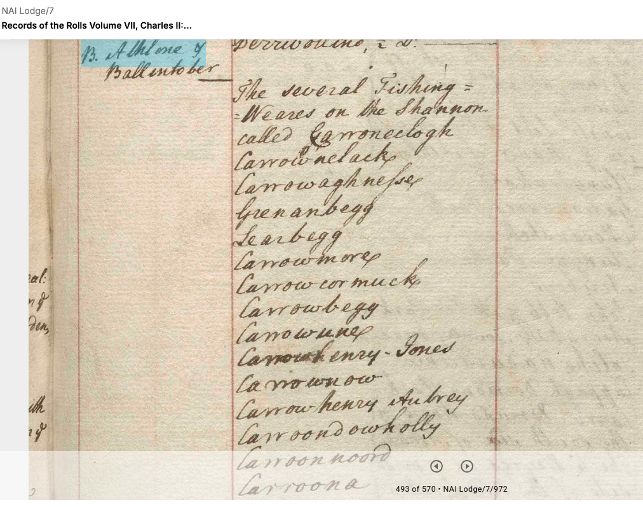 NAI Lodge/7
Records of the Rolls Volume VII, Charles II:...
B. Athlone &
Ballintober
The several Fishing =
=Weares on the Shannon
called Garroneclogh
Carrownelack
Carrowaghnesse
Grenanbegg
Learbegg
Carrowmore
Carrowcormuck
Carrowbegg
Carrowune
Carrowhenry-Jones
Carrownow
Carrow henry Aubrey
Carroondowholly
Carroonnoord
Carroona
493 of 570 • NAI Lodge/7/972